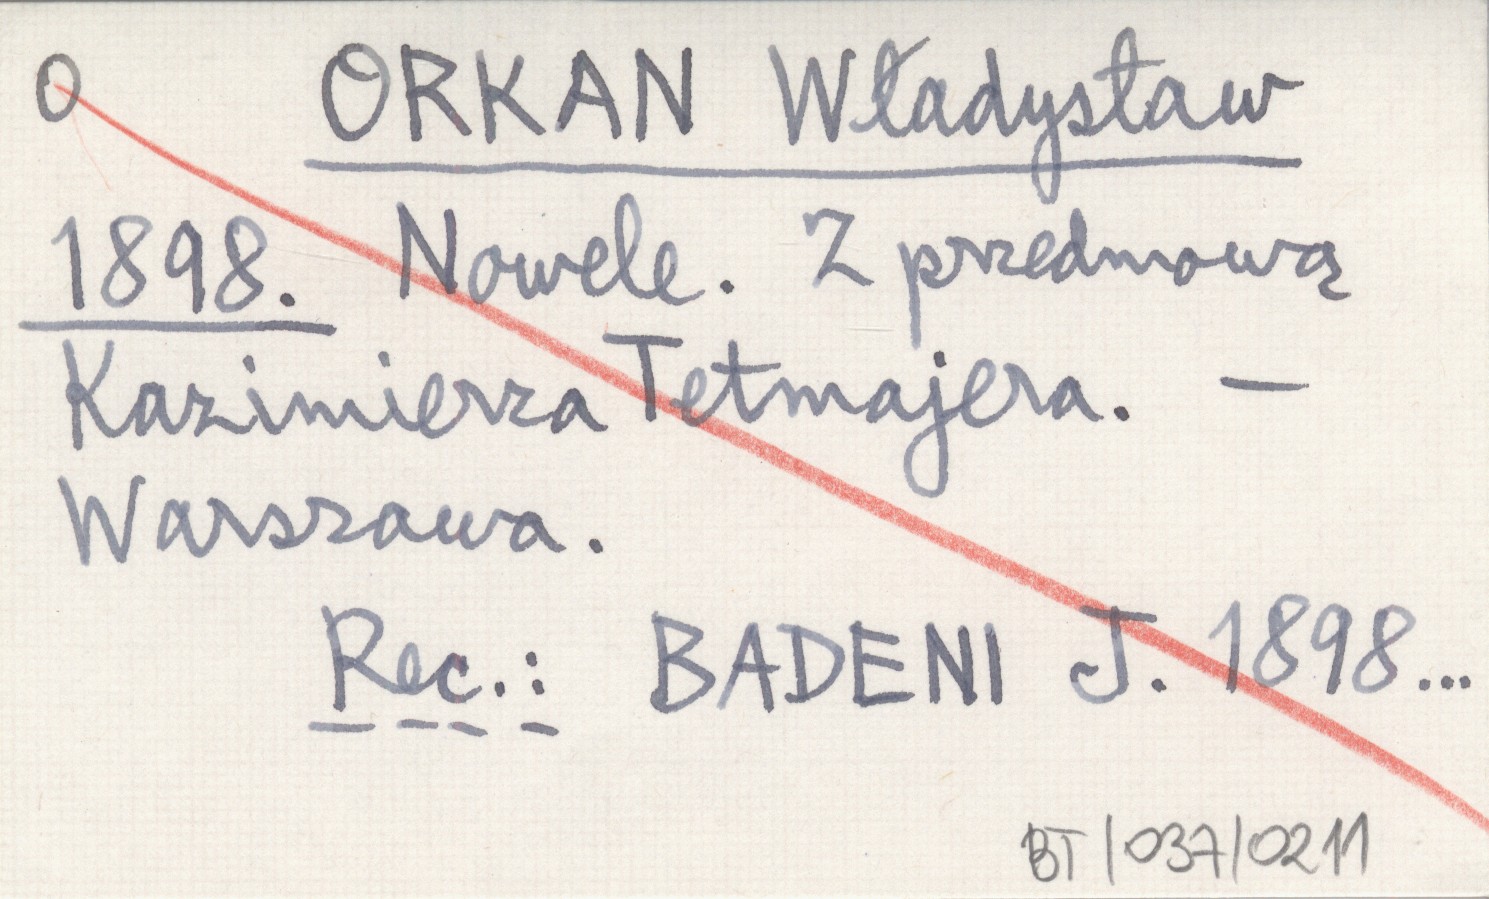 O ORKAN Władysław
1898. Nowele. Z przedmową
Kazimierza Tetmajera. —
Warszawa.
Rec.: BADENI J. 1898...
BT/037/0211